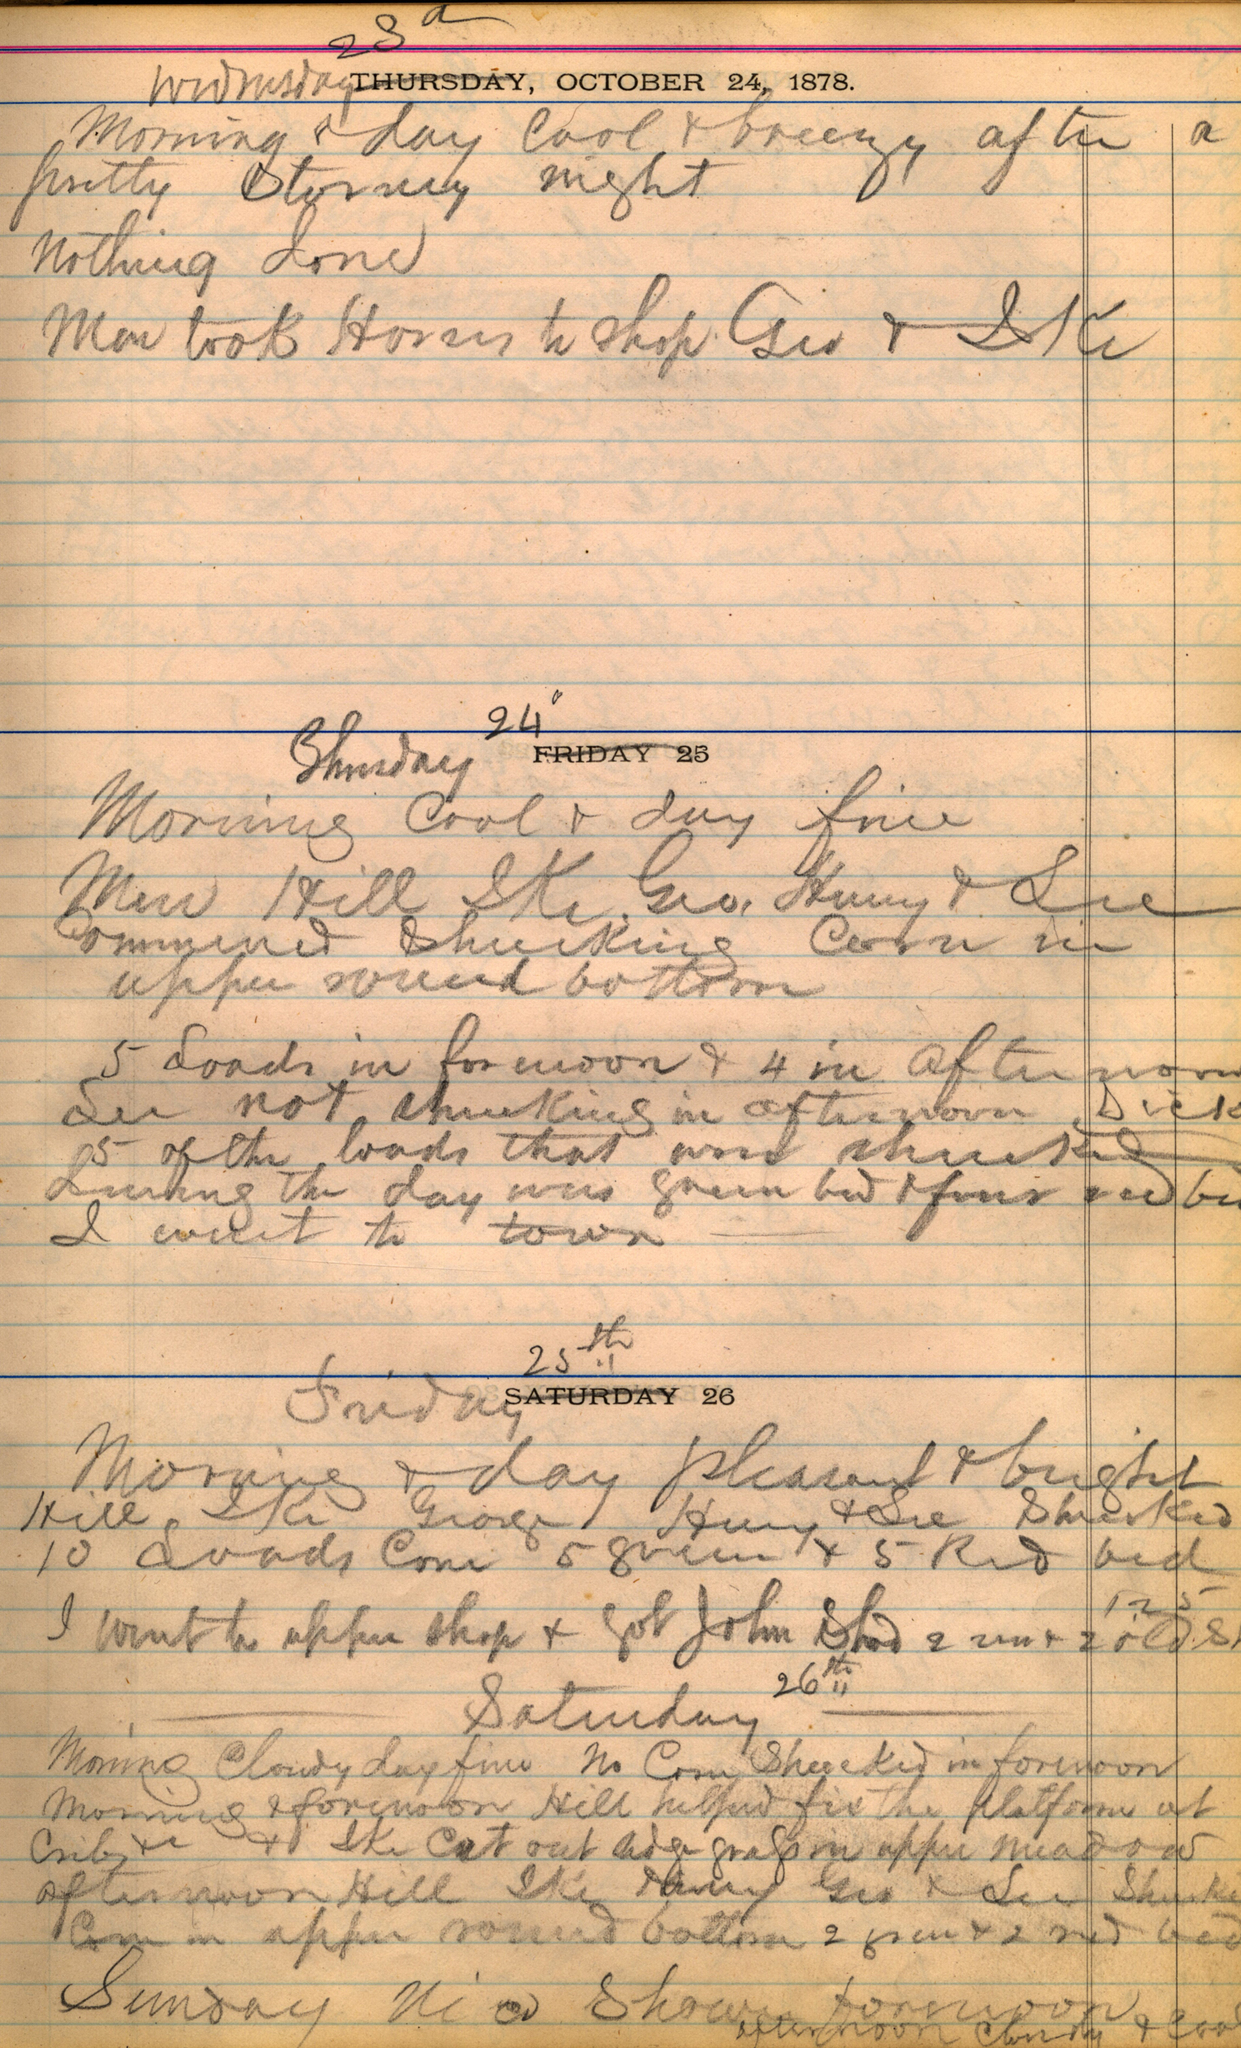 23d
Wednesday THURSDAY, OCTOBER 24, 1878.
Morning & day Cool & breezy after a
pretty stormy night
Nothing done
Men took Horses to shop Geo & Ike
24"
Thursday FRIDAY 25
Morning Cool & day fine
Men Hill Ike, Geo, Henry & Lee
Commenced Shucking Corn in
upper round bottom
5 Loads in forenoon & 4 in afternoon
Lee not shucking in afternoon Dick
5 of the loads that were shucked
during the day was green bed & four red bed
I went to town
25th
Friday SATURDAY 26
Morning & day pleasant & bright
Hill Ike George Henry & Lee Shucked
10 Loads Corn 5 green & 5 Red bed
125
I went to upper shop & got John Shod 2 new & 2 old S
Saturday 26th
Morning Cloudy day fine No Corn Shucked in forenoon
Morning & forenoon Hill helped fix the platform at
Crib & Ike Cut out in upper meadow
afternoon Hill Ike Henry Geo & Lee Shucke
Corn in upper round bottom 2 green & 2 red bed
Sunday Nice Shower forenoon
afternoon Cloudy & Cool